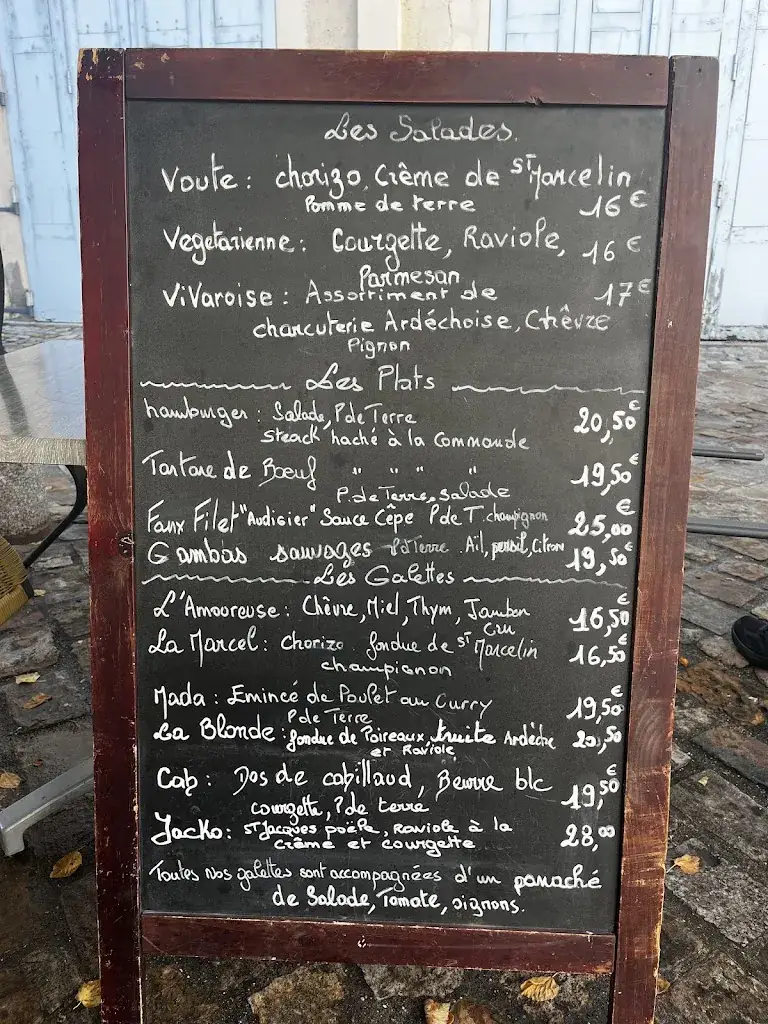 Les Salades.
Voute : chorizo, Crème de ST Marcelin
Pomme de terre 16 €
Vegetarienne : Courgette, Raviole, 16 €
Parmesan
ViVaroise : Assortiment de 17 €
charcuterie Ardéchoise, Chêvre
Pignon
Les Plats
hamburger : Salade, P de Terre 20,50 €
steack haché à la Commande
Tartare de Bœuf " " " " 19,50 €
P. de Terre, salade
Faux Filet "Audigier" Sauce Cêpe P de T. champignon 25,00 €
Gambas sauvages P d Terre . Ail, persil, Citron 19,50 €
Les Galettes
L'Amoureuse : Chêvre, Miel, Thym, Jambon 16,50 €
Cru
La Marcel : chorizo . fondue de ST Marcelin 16,50
champignon
Mada : Emincé de Poulet au Curry 19,50 €
P de Terre
La Blonde : fondue de Poireaux, truite Ardèche 20,50
et Raviole
Cap : Dos de cabillaud, Beurre blc 19,50 €
courgette, P de terre
Jacko : ST Jacques poële, raviole à la 28,00
crème et courgette
Toutes nos galettes sont accompagnées d'un panaché
de Salade, Tomate, oignons.